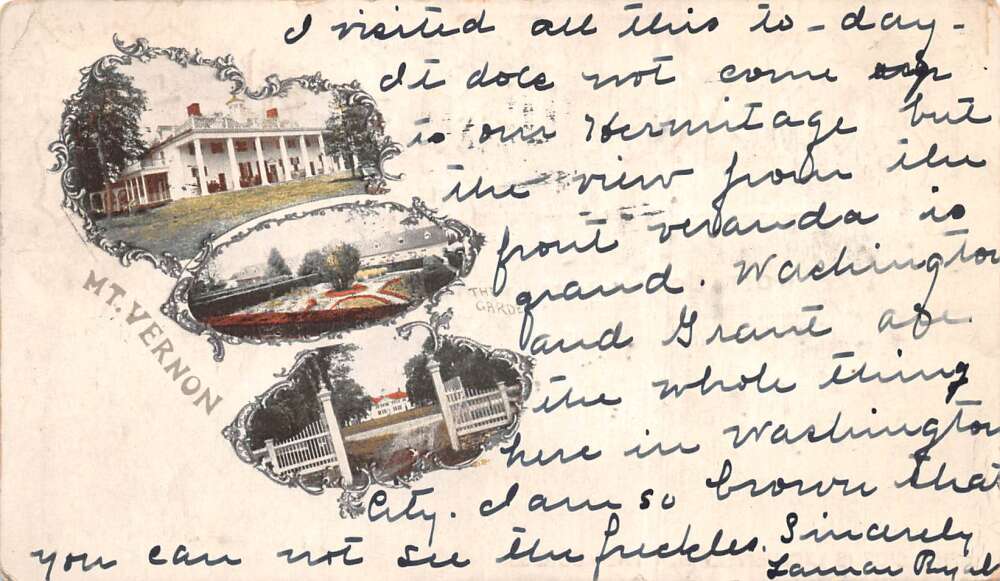 I visited all this to-day-
It does not come up
to our Hermitage but
the view from the
front veranda is
grand. Washington
and Grant are
the whole thing
here in Washington
City. I am so brown that
you can not see the freckles.
Sincerely
Lamar Ryals
MT. VERNON
THE
GARDEN